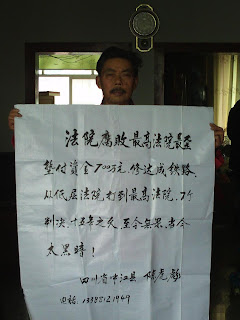 法院腐败最高法院最
垫付资金700万元,修达成铁路,
从低层法院打到最高法院,7个
判决,十五年之久,至今無果,
太黑暗!
四川省中江县
电话:13388121949